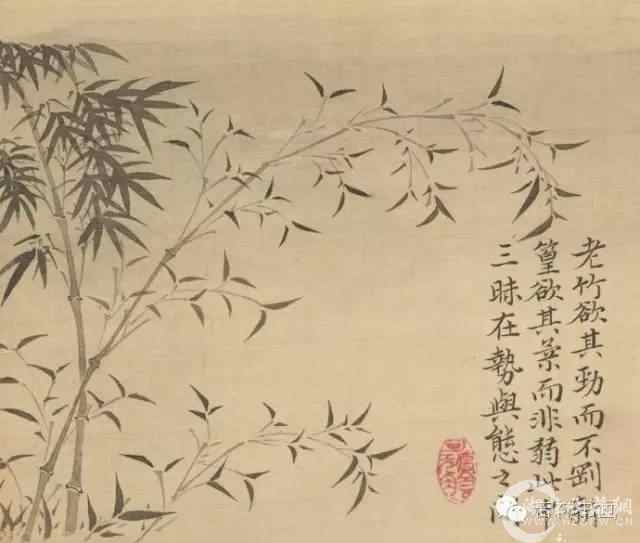 老竹欲其勁而不剛
篁欲其葉而非弱此
三昧在勢與態之